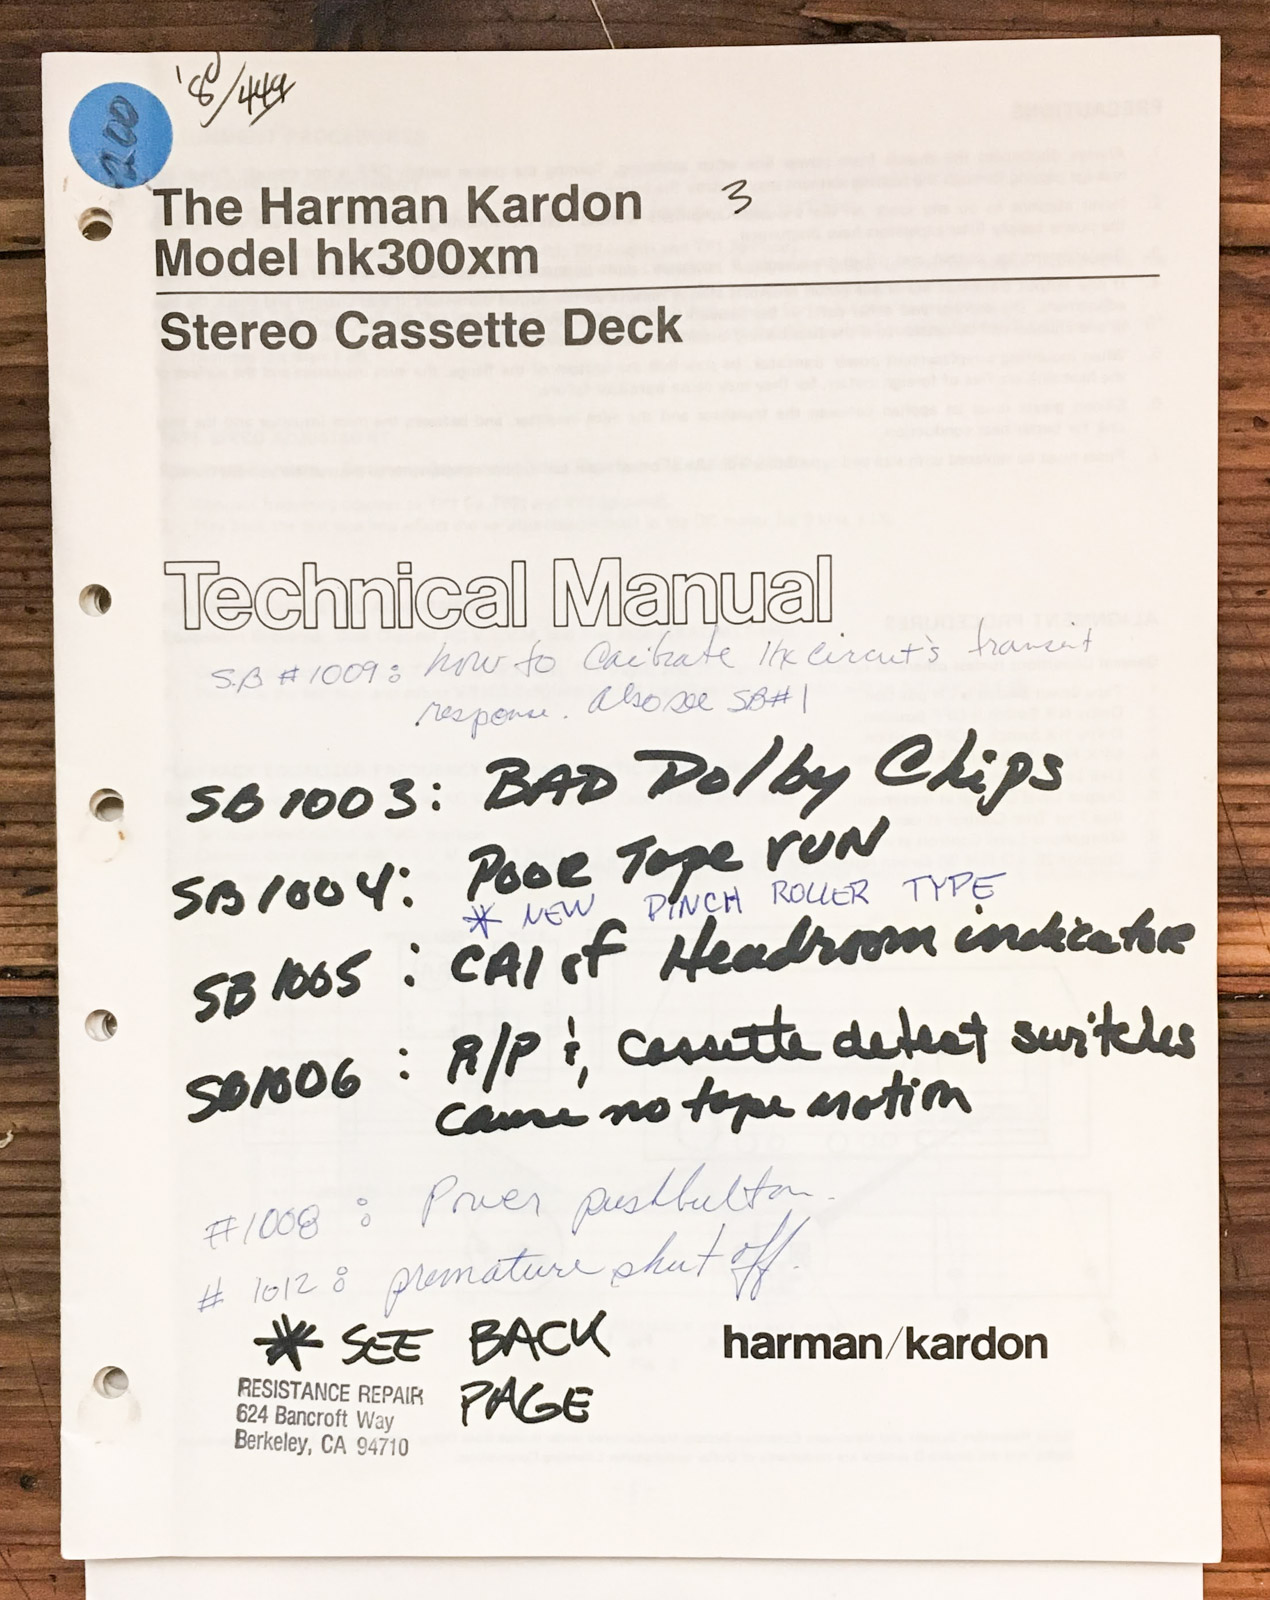 '80/444
200
The Harman Kardon 3
Model hk300xm
Stereo Cassette Deck
Technical Manual
S.B #1009: how to Calibrate Hx Circuit's transit
response. Also see SB#1
SB 1003: BAD Dolby Chips
SB 1004: Poor Tape run
* NEW PINCH ROLLER TYPE
SB 1005: CAl of Headroom indicator
SB1006: R/P & Cassette detect switches
cause no tape motion
#1008: Power pushbutton.
# 1012: premature shut off.
* SEE BACK
PAGE
harman/kardon
RESISTANCE REPAIR
624 Bancroft Way
Berkeley, CA 94710